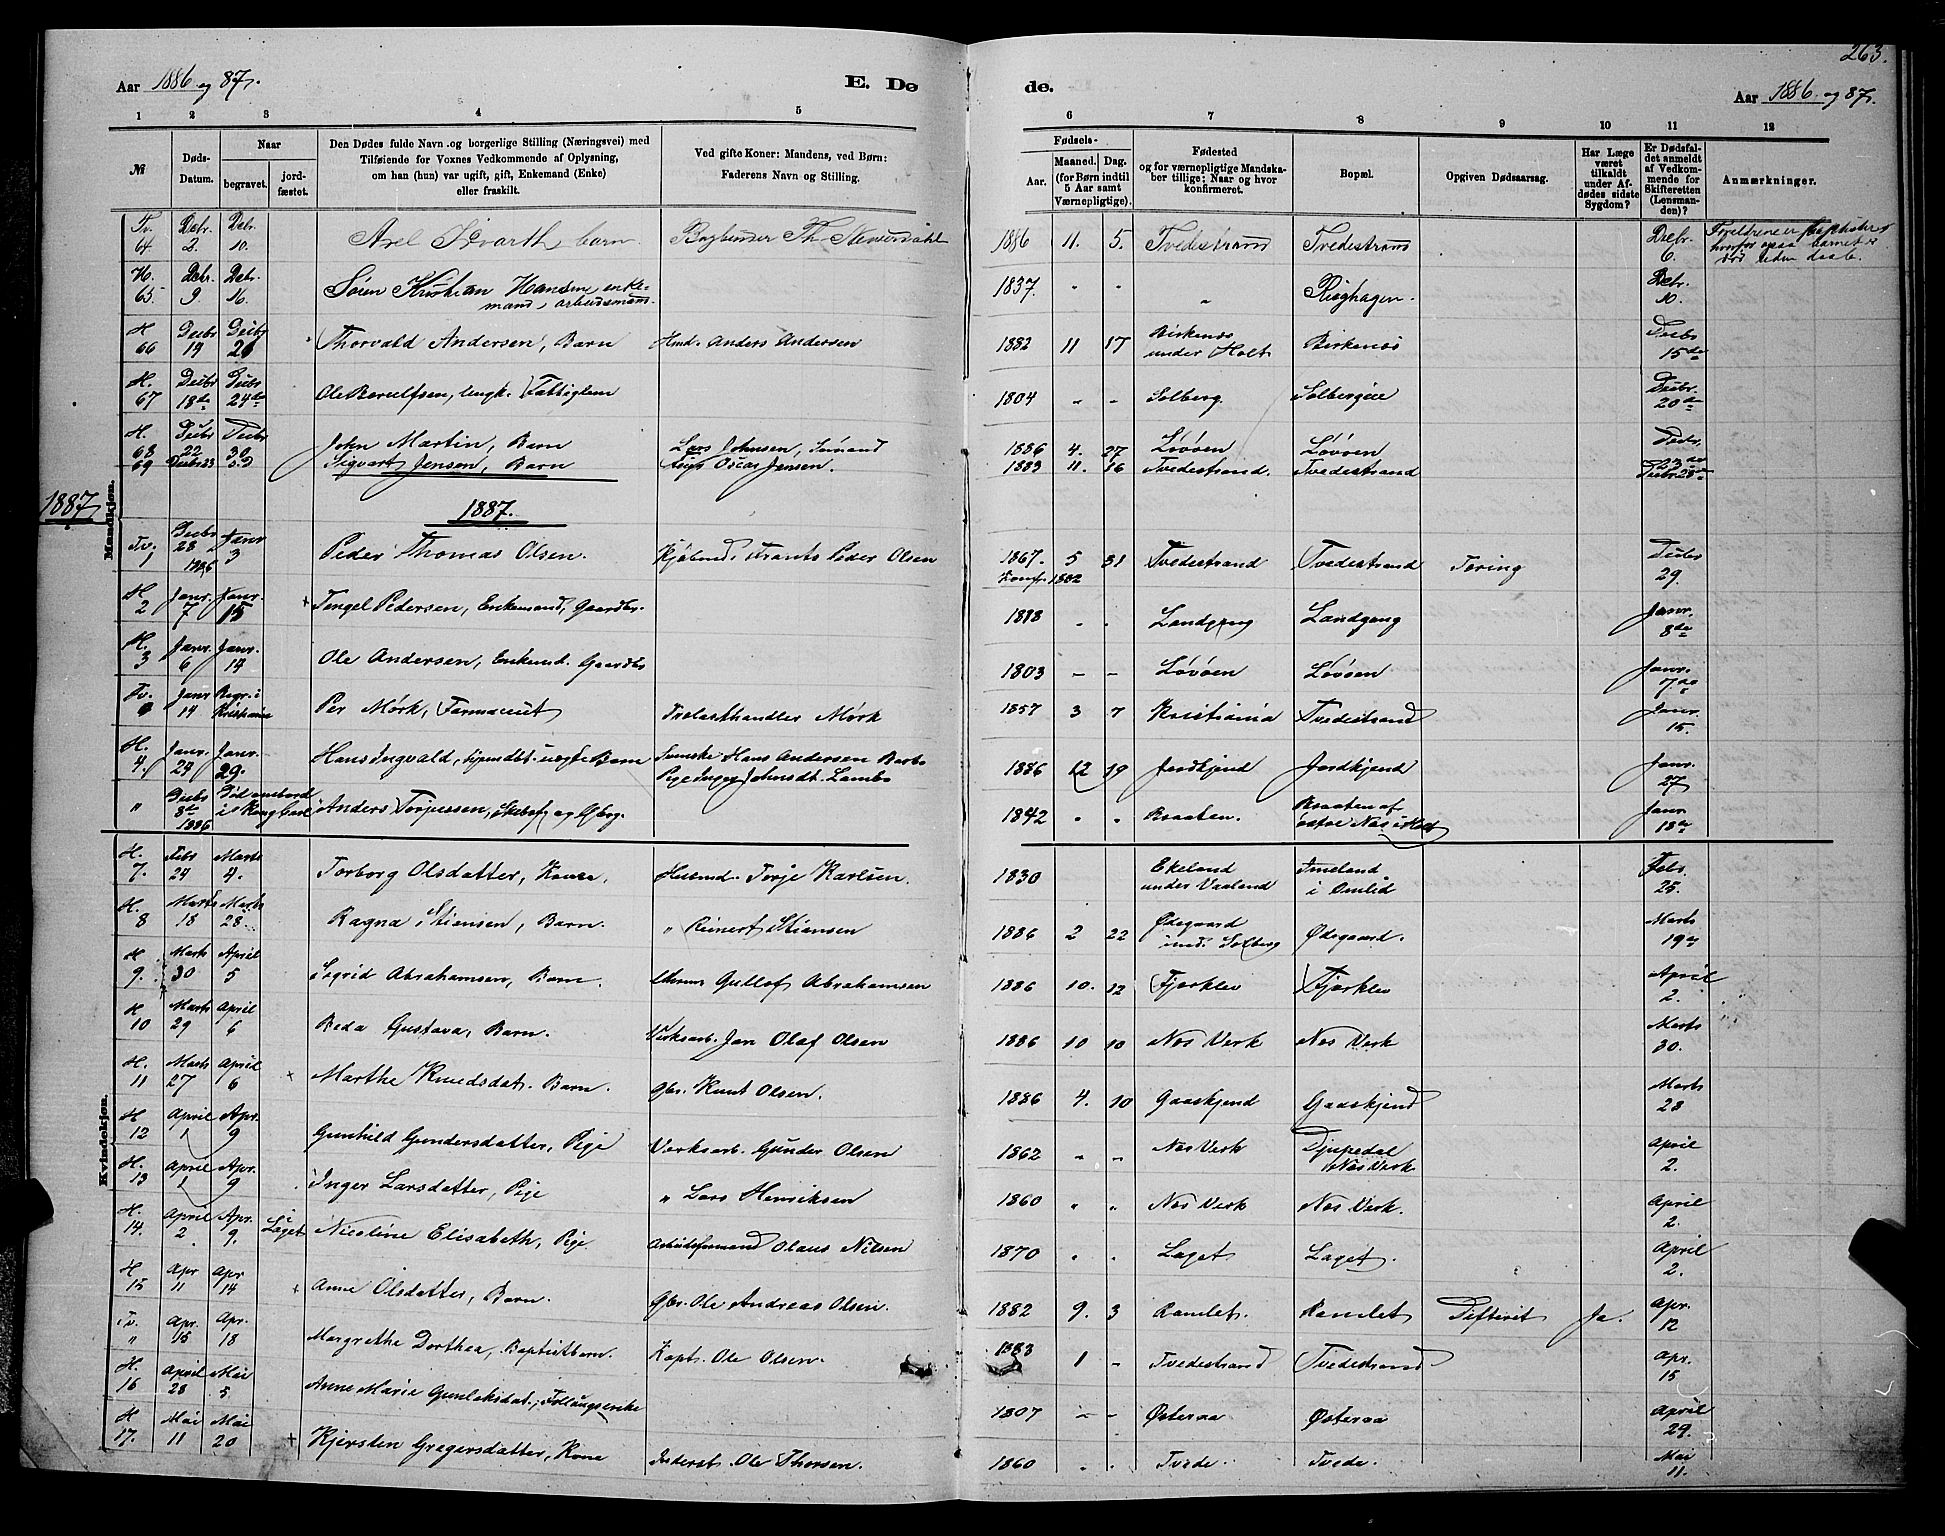 263.
Aar 1886 og 87.
E. Dø
de.
Aar 1886 og 87.
1 2 3 4 5 6 7 8 9 10 11 12
№
Døds-Datum.
Naar
begravet.
jord-fæstet.
Den Dødes fulde Navn og borgerlige Stilling (Næringsvei) med
Tilføiende for Voxnes Vedkommende af Oplysning,
om han (hun) var ugift, gift, Enkemand (Enke)
eller fraskilt.
Ved gifte Koner: Mandens, ved Børn:
Faderens Navn og Stilling.
Fødsels-
Aar.
Maaned. Dag.
(for Børn indtil
5 Aar samt
Værnepligtige).
Fødested
og for værnepligtige Mandska-
ber tillige: Naar og hvor
konfirmeret.
Bopæl.
Opgiven Dødsaarsag.
Har Læge
været
tilkaldt
under Af-
dødes sidste
Sygdom?
Er Dødsfal-
det anmeldt
af Vedkom-
mende for
Skifteretten
(Lensman-
den)?
Anmærkninger.
Mandkjøn.
Tv. 64 Debr. 2. Debr. 10. Axel barn. Th. 1886 11. 5. Tvedestrand Tvedestrand Debr. 6. uden daab.
H. 65 Debr. 9 Debr. 16. Søren Kristian Hansen, enke-
mand, arbeidsmand. 1837. " " " Debr. 10.
H 66 Decbr 19 Decbr 26 Thorvald Andersen, Barn Hmd. Anders Andersen 1882 11 17 Birkenes
under Holt Birkenes Decbr 15de
H. 67 Decbr 18de Decbr 24de Ole Berulfsen, Ungk. Fattiglem 1804 - - Solberg. Solbergeie Decbr. 20de
H. 68 Decbr 22 Decbr 30 John Martin, Barn Lars Johnsen, Sømand 1886 4. 27 Løvøen Løvøen Decbr.
69 Decbr 23 Sigvart Jensen, Barn Oscar Jensen. 1883 11. 16 Tvedestrand. Tvedestrand
1887
1887.
Tv. 1 Decbr 28 1886 Janr 3 Peder Thomas Olsen. Peder Olsen 1867. 5 31 Tvedestrand Tvedestrand Tæring Decbr 29.
Konfr. 1882
H 2 Janr. 7 Janr. 15 + Tengel Pedersen, Enkemand, Gaardbr. " . Landgang Landgang Janr. 8de
H. 3 Janr. 6 Janr. 14 Ole Andersen, Enkemd. Gaardbr 1803 - - Løvøen Løvøen Janr. 7de
Tv. Janr 14 Begr. i Kristiania Per Mørk, Farmaceut Trælasthandler Mørk 1857 3 7 Kristiania Tvedestrand Janr. 15.
H. 4 Janr. 24 Janr. 29. Hans Ingvald, uegte Barn Svenske Hans Andersen
Pige Johnsdt. 1886 12 19 Jordkjend Jordkjend Janr. 27
" Decbr 8de 1886 Anders Torjussen, 1842 " " Braaten. Braaten af
østre Næs i Holt Janr. 18de
Kvindekjøn.
H. 7. Febr 24 Marts 4. Torborg Olsdatter, Kone. Husmd. Torje Karlsen. 1830 Ekeland
under Vaaland
i Omlid Febr. 25.
H. 8 Marts 18 Marts 23. Ragna Stiansen, Barn. " Reinert Stiansen 1886 2 22 Ødegaard
und. Solberg Ødegaard. Marts 19de
H 9. Marts 30 April 5 Sigrid Abrahamsen, Barn. Gullof Abrahamsen 1886 10. 12 Fjærklev Fjærklev April 2.
H 10 Marts 29 April 6 Beda Gustava, Barn. Verksarb. Jan Olaf Olsen 1886 10 10 Næs Verk Næs Verk Marts 30.
H. 11 Marts 27 April 6 + Marthe Knudsdat. Barn. Gbr. Knut Olsen. 1886 4. 10 Gaaskjend Gaaskjend Marts 28
H 12 April 1 Apr. 9 Gunhild Gundersdatter, Pige Verksarb. Gunder Olsen 1862 " " Næs Verk Djupedal
Næs Verk April 2.
H. 13 April 1 Apr. 9 Inger Larsdatter, Pige " Lars Henriksen 1860 " " Næs Verk Næs Verk. April 2.
H. 14. April 2 Apr. 9. i Laget Nicoline Elisabeth, Pige Arbeidsformand Olaus Nilsen 1870 " . Laget Laget. April 2.
H 15 Apr 11 Apr 14 + Anne Olsdatter, Barn. Gbr. Ole Andreas Olsen. 1882 9. 3 Ramlet. Ramlet Difterit Ja. Apr. 12
Tv. " Apr. 15 Apr. 18 Margrethe Dorthea, Baptistbarn. Kapt. Ole Olsen. 1883 1 - Tvedestrand Tvedestrand Apr. 15
H. 16 April 28 Mai 5. Anne Marie Gunlaksdat., Follaugsenke 1807 - - Østeraa Østeraa April 29.
H 17. Mai 11 Mai 20 + Kjersten Gregersdatter, Kone Inderst. Ole Thorsen. 1860 " . Tvede. Tvede. Mai 11.